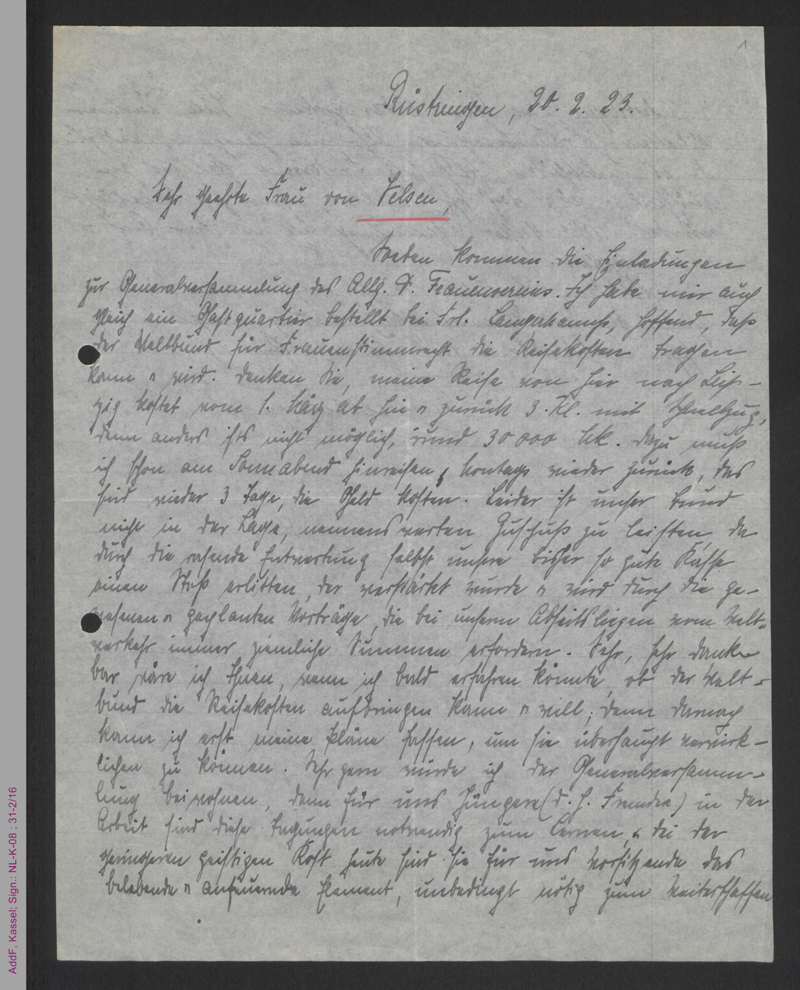 1
Rüstringen, 20. 2. 23.
Sehr geehrte Frau von Velsen,
Soeben kommen die Einladungen
zur Generalversammlung des Allg. D. Frauenvereins. Ich habe mir auch
gleich ein Gastquartier bestellt bei Frl. Langerhannß, hoffend, daß
der Weltbund für Frauenstimmrecht die Reisekosten tragen
kann u wird. Denken Sie, meine Reise von hier nach Leip-
zig kostet vom 1. März ab hin u zurück 3. Kl. mit Schnellzug,
denn anders ists nicht möglich, rund 30 000 Mk. Dazu muß
ich schon am Sonnabend hinreisen, Montags wieder zurück, das
sind wieder 3 Tage, die Geld kosten. Leider ist unser Bund
nicht in der Lage, nennenswerten Zuschuß zu leisten, da
durch die rasende Entwertung selbst unsere bisher so gute Kasse
einen Stoß erlitten, der verstärkt wurde u wird durch die ge-
wesenen u geplanten Vorträge, die bei unserm Abseitsliegen vom Welt-
verkehr immer ziemliche Summen erfordern. Sehr, sehr dank-
bar wäre ich Ihnen, wenn ich bald erfahren könnte, ob der Welt-
bund die Reisekosten aufbringen kann u will; denn darnach
kann ich erst meine Pläne fassen, um sie überhaupt verwirk-
lichen zu können. Sehr gern würde ich der Generalversamm-
lung beiwohnen, denn für uns Jüngere (d. h. Fremdere) in der
Arbeit sind diese Tagungen notwendig zum Lernen, u bei der
geringeren geistigen Kost heute sind sie für uns Vorsitzende das
belebende u anfeuernde Element, unbedingt nötig zum Weiterschaffen
AddF, Kassel; Sign.: NL-K-08 ; 31-2/16